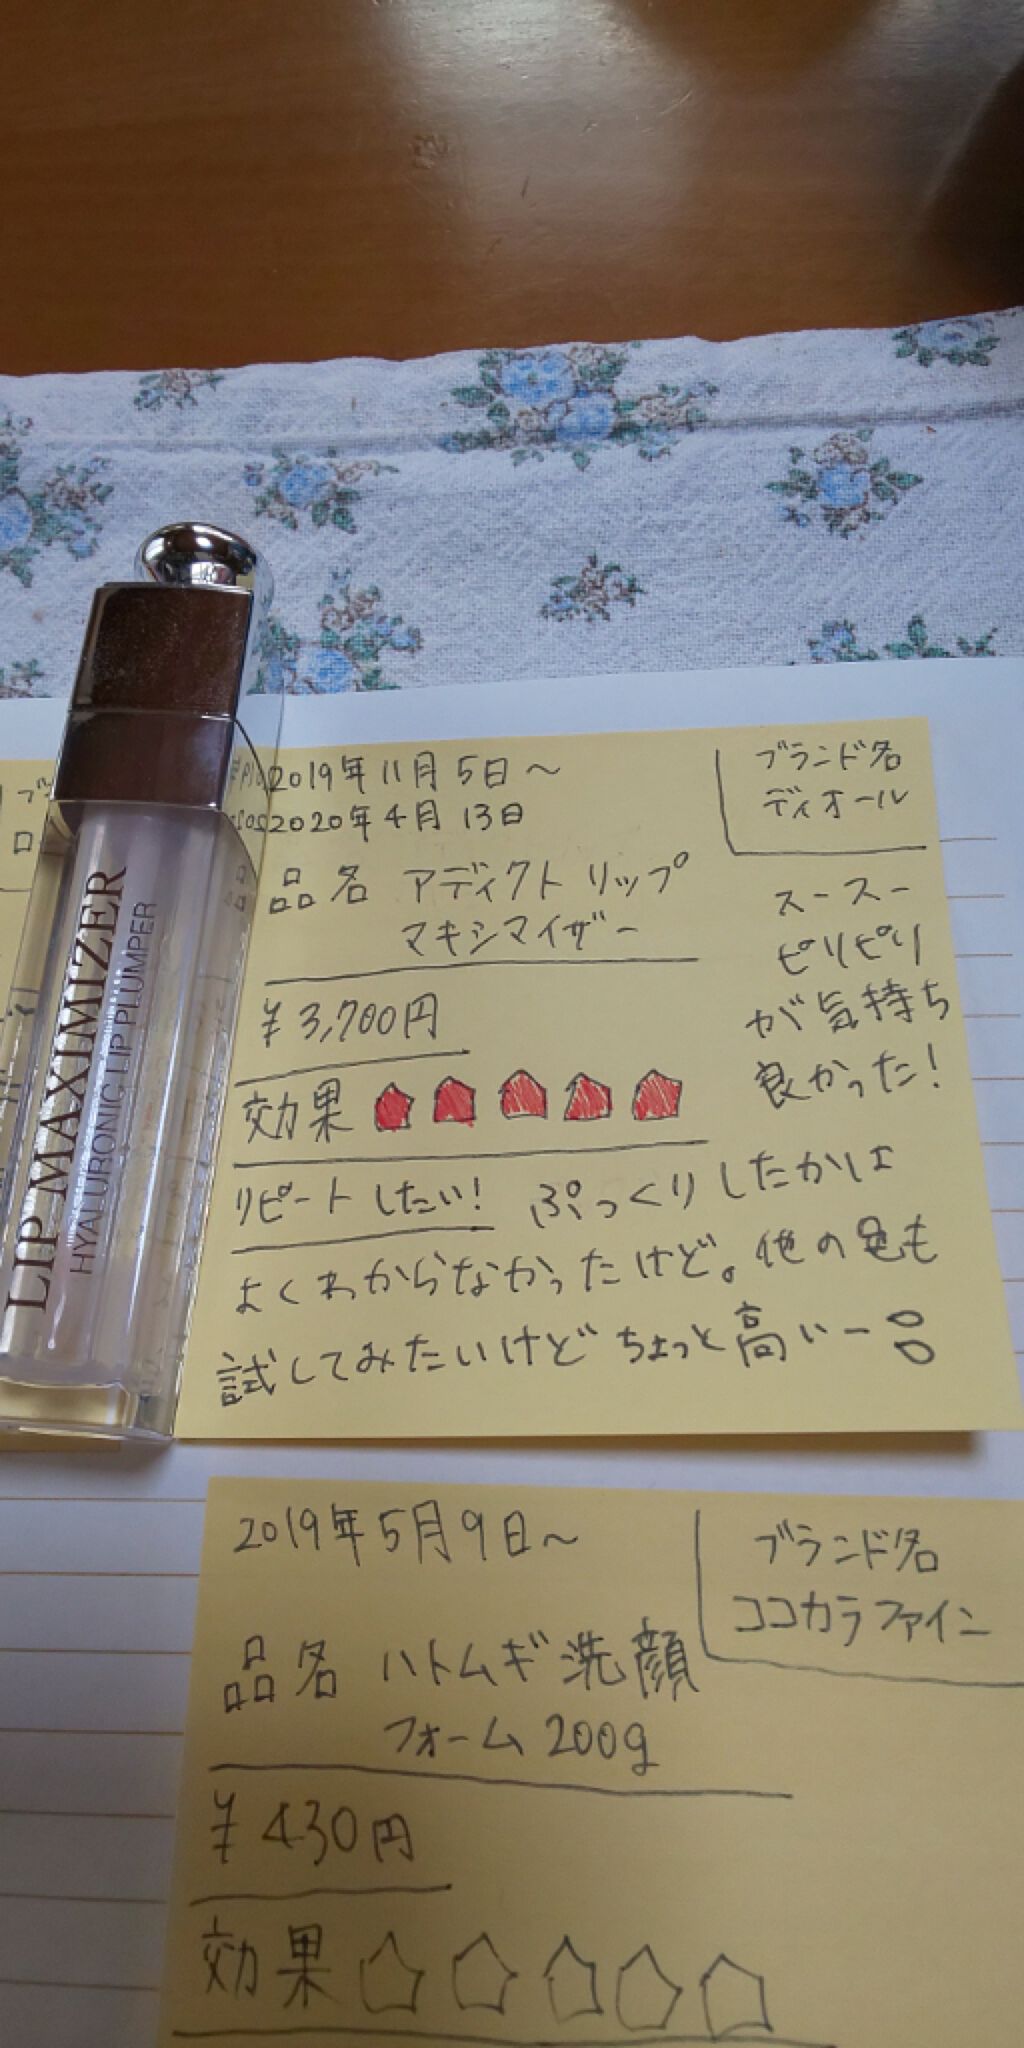 LIP MAXIMIZER
HYALURONIC LIP PLUMPER
2019年11月5日~
2020年4月13日
ブランド名
ディオール
品名 アディクトリップ
マキシマイザー
¥3,700円
効果
スースー
ピリピリ
が気持ち
良かった!
リピートしたい! ぷっくりしたかは
よくわからなかったけど。他の色も
試してみたいけどちょっと高いー
2019年5月9日~
ブランド名
ココカラファイン
品名 ハトムギ洗顔
フォーム 200g
¥430円
効果